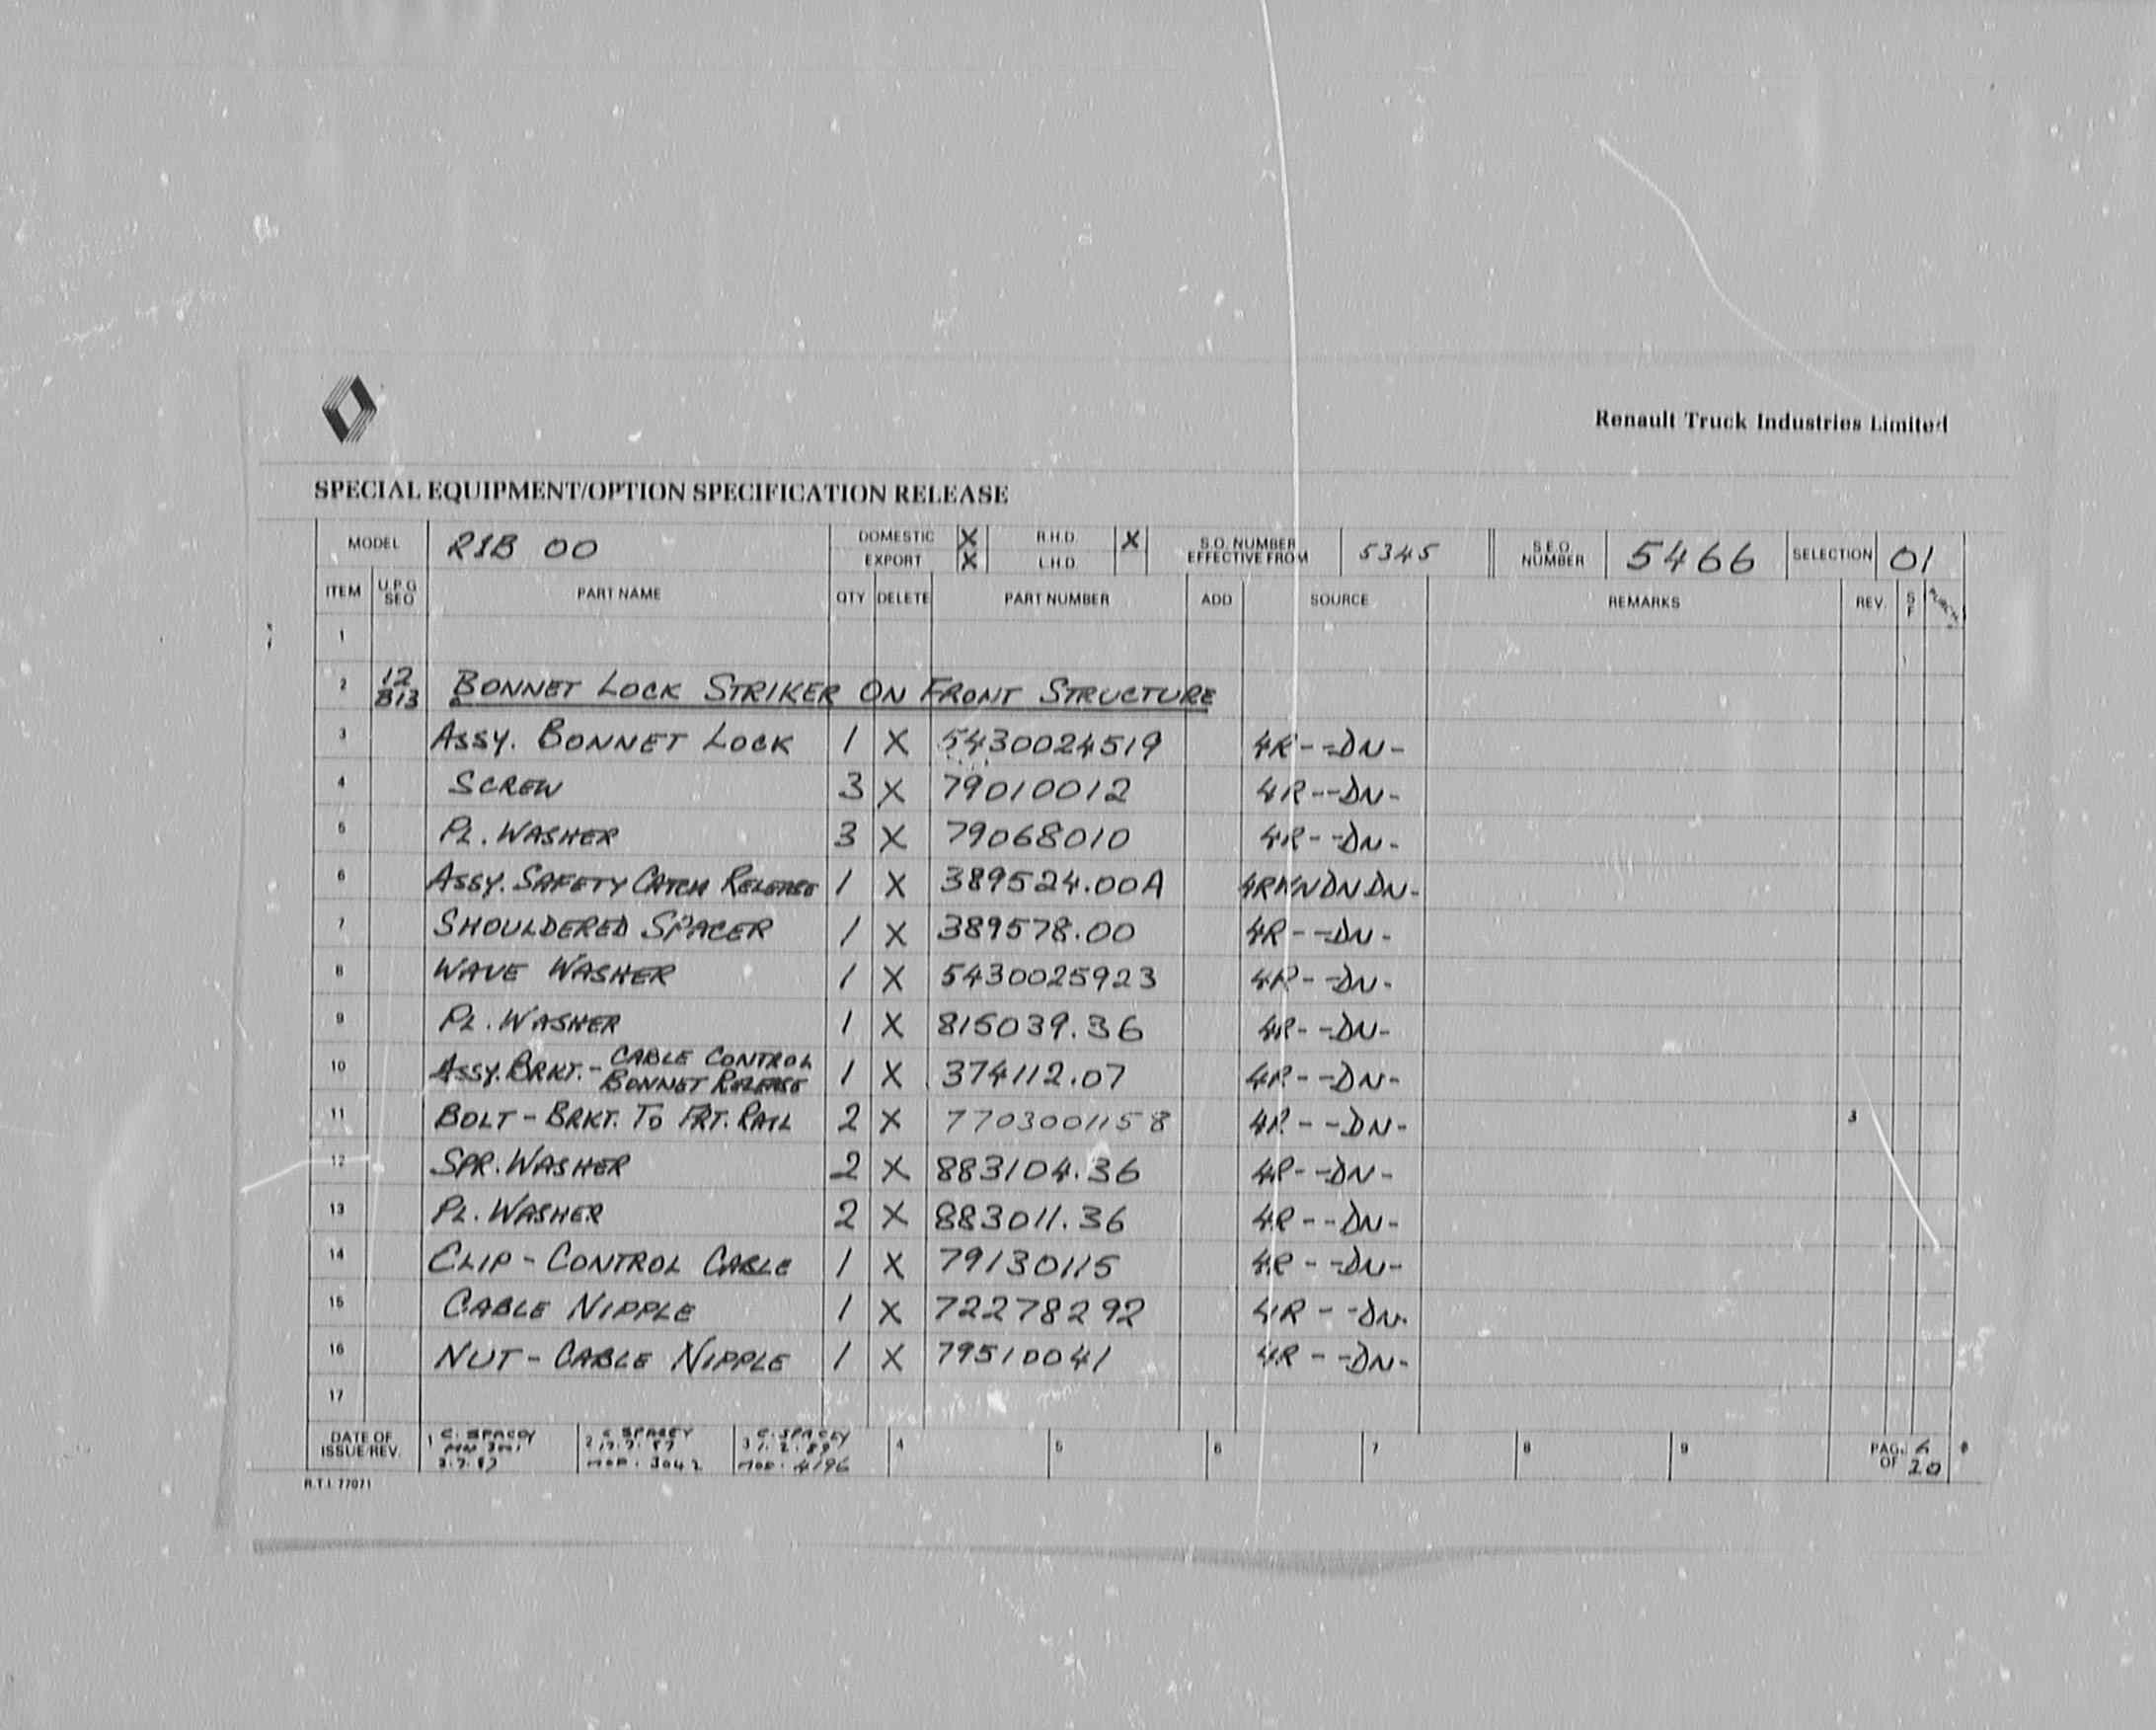 Renault Truck Industries Limited
SPECIAL EQUIPMENT/OPTION SPECIFICATION RELEASE
MODEL R1B 00 DOMESTIC X R.H.D. X S.O. NUMBER EFFECTIVE FROM 5345 S.E.O. NUMBER 5466 SELECTION 01
EXPORT X L.H.D.
ITEM U.P.G SEQ PART NAME QTY DELETE PART NUMBER ADD SOURCE REMARKS REV. S F PURCH
1
2 12 B13 BONNET LOCK STRIKER ON FRONT STRUCTURE
3 ASSY. BONNET LOCK 1 X 5430024519 4R--DN-
4 SCREW 3 X 79010012 4R--DN-
5 PL. WASHER 3 X 79068010 4R--DN-
6 ASSY. SAFETY CATCH RELEASE 1 X 389524.00A 4RKNDNDN-
7 SHOULDERED SPACER 1 X 389578.00 4R--DN-
8 WAVE WASHER 1 X 5430025923 4R--DN-
9 PL. WASHER 1 X 815039.36 4R--DN-
10 ASSY. BRKT.- CABLE CONTROL BONNET RELEASE 1 X 374112.07 4R--DN-
11 BOLT - BRKT. TO FRT. RAIL 2 X 7703001158 4R--DN- 3
12 SPR. WASHER 2 X 883104.36 4R--DN-
13 PL. WASHER 2 X 883011.36 4R--DN-
14 CLIP - CONTROL CABLE 1 X 79130115 4R--DN-
15 CABLE NIPPLE 1 X 72278292 4R--DN-
16 NUT - CABLE NIPPLE 1 X 79510041 4R--DN-
17
DATE OF ISSUE/REV. 1 C. SPACEY 3.7.87 2 C SPACEY 17.7.87 MOD. 3042 3 C. SPACEY 1.2.89 MOD. 4196 4 5 6 7 8 9 PAGE 6 OF 20
R.T.I. 77071